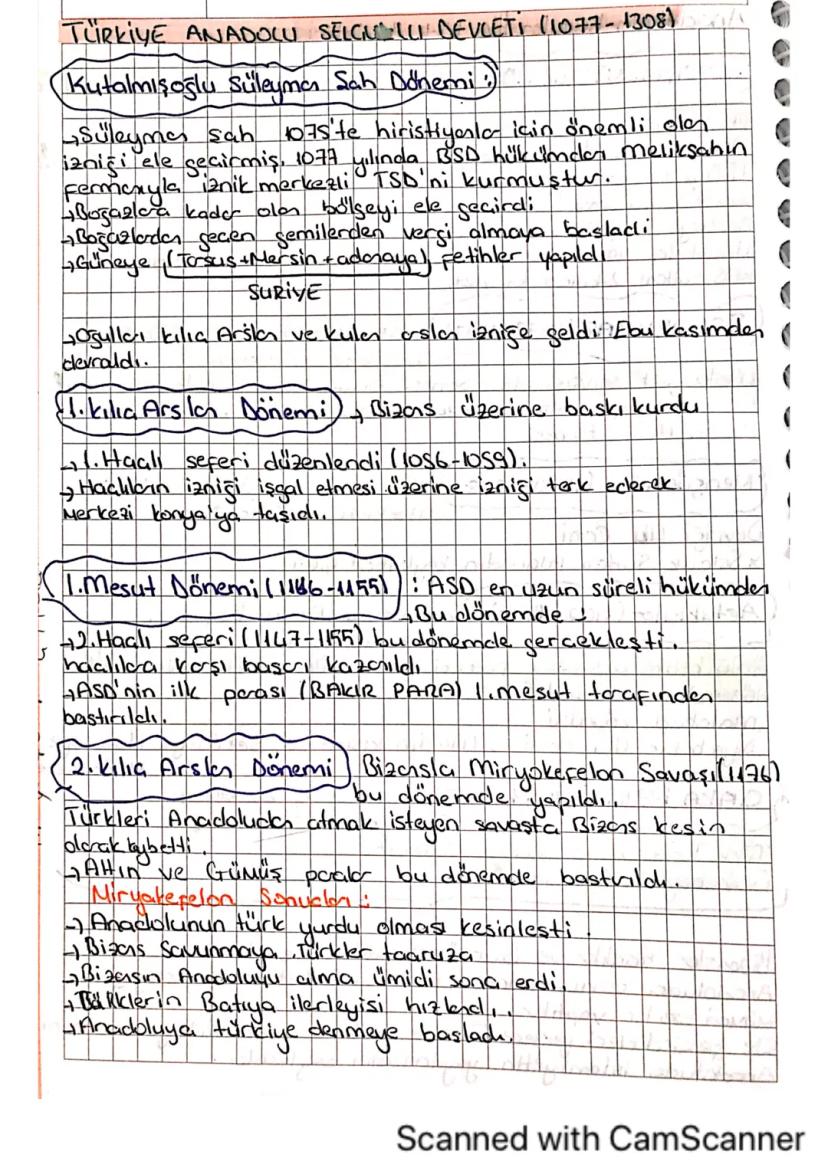 TÜRKİYE ANADOLU SELÇUKLU DEVLETİ (1077-1308)
Kutalmışoğlu Süleyman Şah Dönemi :
→Süleyman şah 1075'te hiristiyanlar için önemli olan
izniği ele geçirmiş. 1077 yılında BSD hükümdarı melikşahın
fermanıyla iznik merkezli TSD'ni kurmuştur.
→Boğazlara kadar olan bölgeyi ele geçirdi
→Boğazlardan geçen gemilerden vergi almaya başladı
→Güneye (Tarsus+Mersin+adanaya) fetihler yapıldı
SURİYE
→Oğulları kılıç Arslan ve kulan arslan izniğe geldi Ebu kasımdan
devraldı.
1. kılıç Arslan Dönemi → Bizans üzerine baskı kurdu
→1. Haçlı seferi düzenlendi (1096-1099).
→Haçlıların izniği işgal etmesi üzerine izniği terk ederek
Merkezi konya'ya taşıdı.
1. Mesut Dönemi (1116-1155) : ASD en uzun süreli hükümdarı
→Bu dönemde
→2. Haçlı seferi (1147-1155) bu dönemde gerçekleşti.
haçlılara karşı başarı kazanıldı
→ASD'nin ilk parası (BAKIR PARA) 1. mesut tarafından
bastırıldı.
2. kılıç Arslan Dönemi Bizansla Miryokefelon Savaşı (1176)
bu dönemde yapıldı.
Türkleri Anadoludan atmak isteyen savaşta Bizans kesin
olarak kybetti.
→Altın ve Gümüş paralar bu dönemde bastırıldı.
Miryakefelon Sonuçları :
→Anadolunun türk yurdu olması kesinleşti.
→Bizans Savunmaya, Türkler taaruza
→Bizansın Anadoluyu alma ümidi sona erdi.
→Türklerin Batıya ilerleyişi hızlandı.
→Anadoluya türkiye denmeye başladı.
Scanned with CamScanner